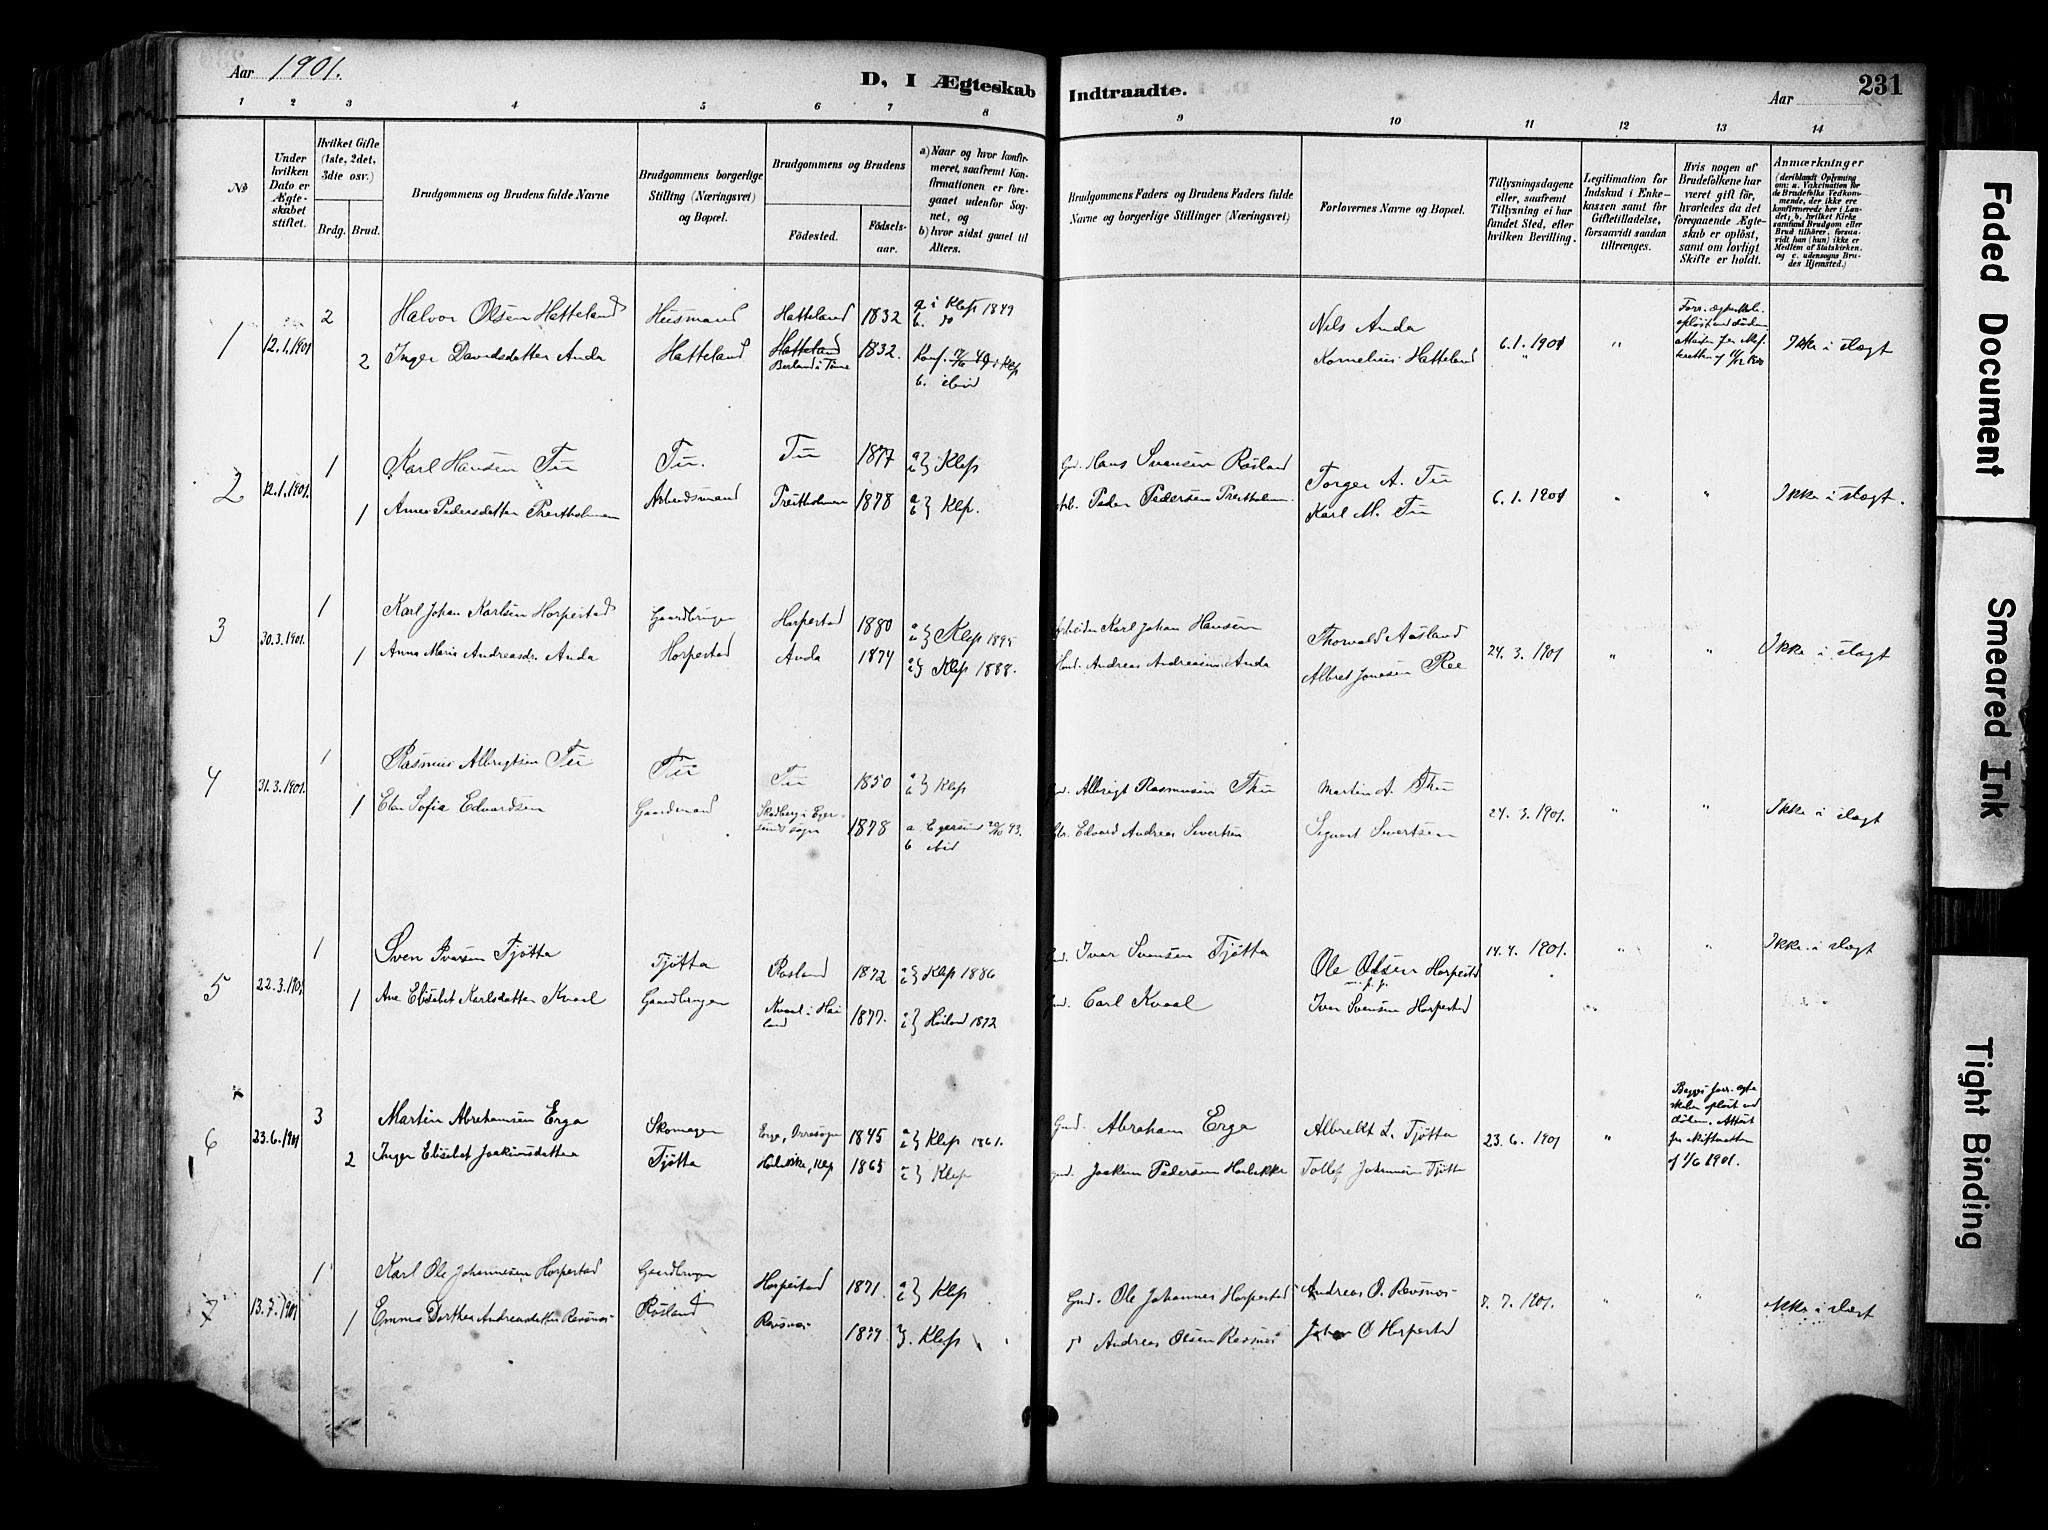 Aar 1901.
D, I Ægteskab Indtraadte.
231
Aar
1 2 3 4 5 6 7 8 9 10 11 12 13 14
No
Under hvilken Dato er Ægteskabet stiftet.
Hvilket Gifte (1ste, 2det, 3die osv.)
Brdg. Brud.
Brudgommens og Brudens fulde Navne
Brudgommens borgerlige Stilling (Næringsvei) og Bopæl.
Brudgommens og Brudens
Fødested. Fødselsaar.
a) Naar og hvor konfirmeret, saafremt Konfirmationen er foregaaet udenfor Sognet, og
b) hvor sidst gaaet til Alters.
Brudgommens Faders og Brudens Faders fulde Navne og borgerlige Stillinger (Næringsvei)
Forlovernes Navne og Bopæl.
Tillysningsdagene eller, saafremt Tillysning ei har fundet Sted, efter hvilken Bevilling.
Legitimation for Indskud i Enkekassen samt for Giftetilladelse, forsaavidt saadan tiltrænges.
Hvis nogen af Brudefolkene har været gift før, hvorledes da det foregaaende Ægteskab er opløst, samt om lovligt Skifte er holdt.
Anmærkninger
(deriblandt Oplysning om: a. Vakcination for de Brudefolks Vedkommende, der ikke ere konfirmerede her i Landet; b. hvilket Kirkesamfund Brudgom eller Brud tilhører, forsaavidt han (hun) ikke er Medlem af Statskirken. og c. udensogns Brudes Hjemsted.)
1 12.1.1901 2 Halvor Olsen Hatteland Husmand Hatteland 1832 a i Klep 1849 Nils Anda 6.1.1901 " Ikke i slægt
b. do
2 Inger Davidsdatter Anda Hatteland Hatteland 1832. Konf. i Klep Kornelius Hatteland "
b. ibid
2 12.1.1901. 1 Karl Hansen Tu Tu. Tu 1877 a b} Klep Gmd. Hans Svensen Røsland Torger A. Tu 6.1.1901 " " Ikke i slægt.
1 Arbeidsmand 1878 a b} Klep. Peder Pedersen Karl M. Tu
3 30.3.1901. 1 Karl Johan Karlsen Horpestad Gaardbruger Horpestad 1880 a b} Klep 1895 Arbeider Karl Johan Hansen Thorvald Aasland 24.3.1901 " " Ikke i slægt
1 Anna Maria Andreasdr. Anda Horpestad Anda 1874 a b} Klep 1888. Andreas Andreasen Anda Albret Jonesen Ree
4 31.3.1901. 1 Rasmus Albrigtsen Tu Tu Tu 1850 a b} Klep Gmd. Albrigt Rasmusen Thu Martin A. Thu 24.3.1901. " " Ikke i slægt
1 Sofia Edvardsen Gaardmand 1878 a Egersund 93. Edvard Andreas Sivertsen Sivertsen
b ibid
5 22.3.1901. 1 Sven Ivarsen Tjøtta Tjøtta Røsland 1872 a b} Klep 1886 Gmd. Ivar Svensen Tjøtta Ole Olsen Horpestad 14.4.1901. " " Ikke i slægt
m. p. p.
1 Ane Elisabet Karlsdatter Kvaal Gaardbruger Kvaal i Høiland 1877. a b} Høiland 1872 Gmd. Carl Kvaal Iver Svensen Horpestad "
6 23.6.1901 3 Martin Abrahamsen Erga Skomager Erga, Orresogn 1845 a b} Klep 1861. Gmd. Abraham Erga Albrekt L. Tjøtta 23.6.1901 " Begges forr. ægteskaber opløst ved døden. Attest fra skifteretten af 1/6 1901.
2 Inger Elisabet Joakimsdatter Tjøtta Klep 1865 a b} Klep Gmd. Joakim Pedersen Tollef Johannesen Tjøtta
7 13.7.1901 1 Karl Ole Johannesen Horpestad Gaardbruger Horpestad 1871. a b} Klep Gmd. Ole Johannes Horpestad Andreas O. Revsnes 7.7.1901. " " Ikke i slægt
1 Emma Dorthea Andreasdatter Revsnes Røsland Revsnes 1879 }. Klep Andreas Olsen Revsnes Johan O Horpestad
Faded Document
Smeared Ink
Tight Binding